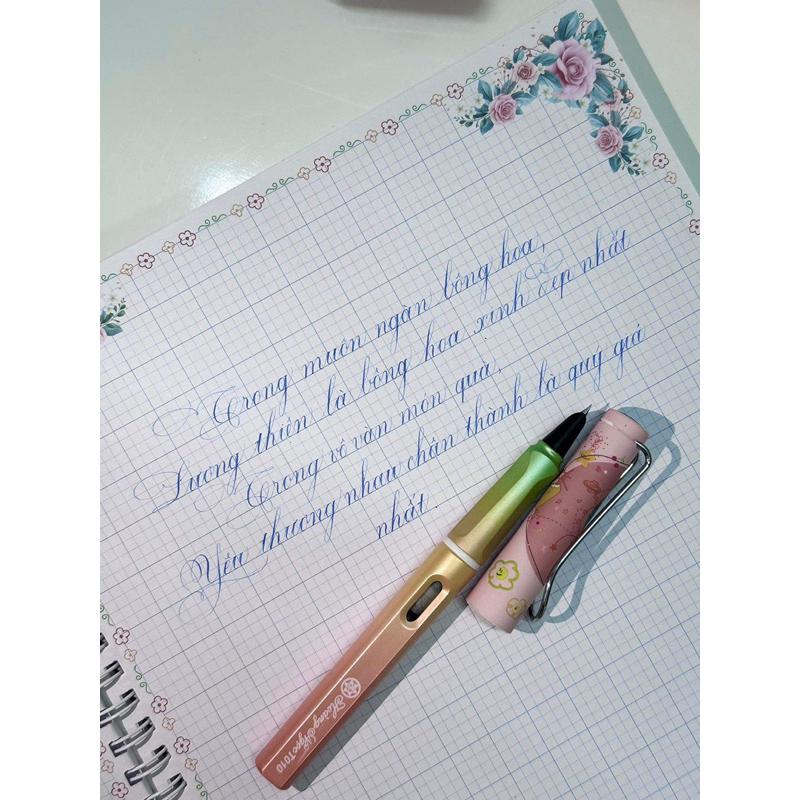 Trong muôn ngàn bông hoa,
Lương thiện là bông hoa xinh đẹp nhất
Trong vô vàn món quà,
Yêu thương nhau chân thành là quý giá
nhất.
Ngọc T010